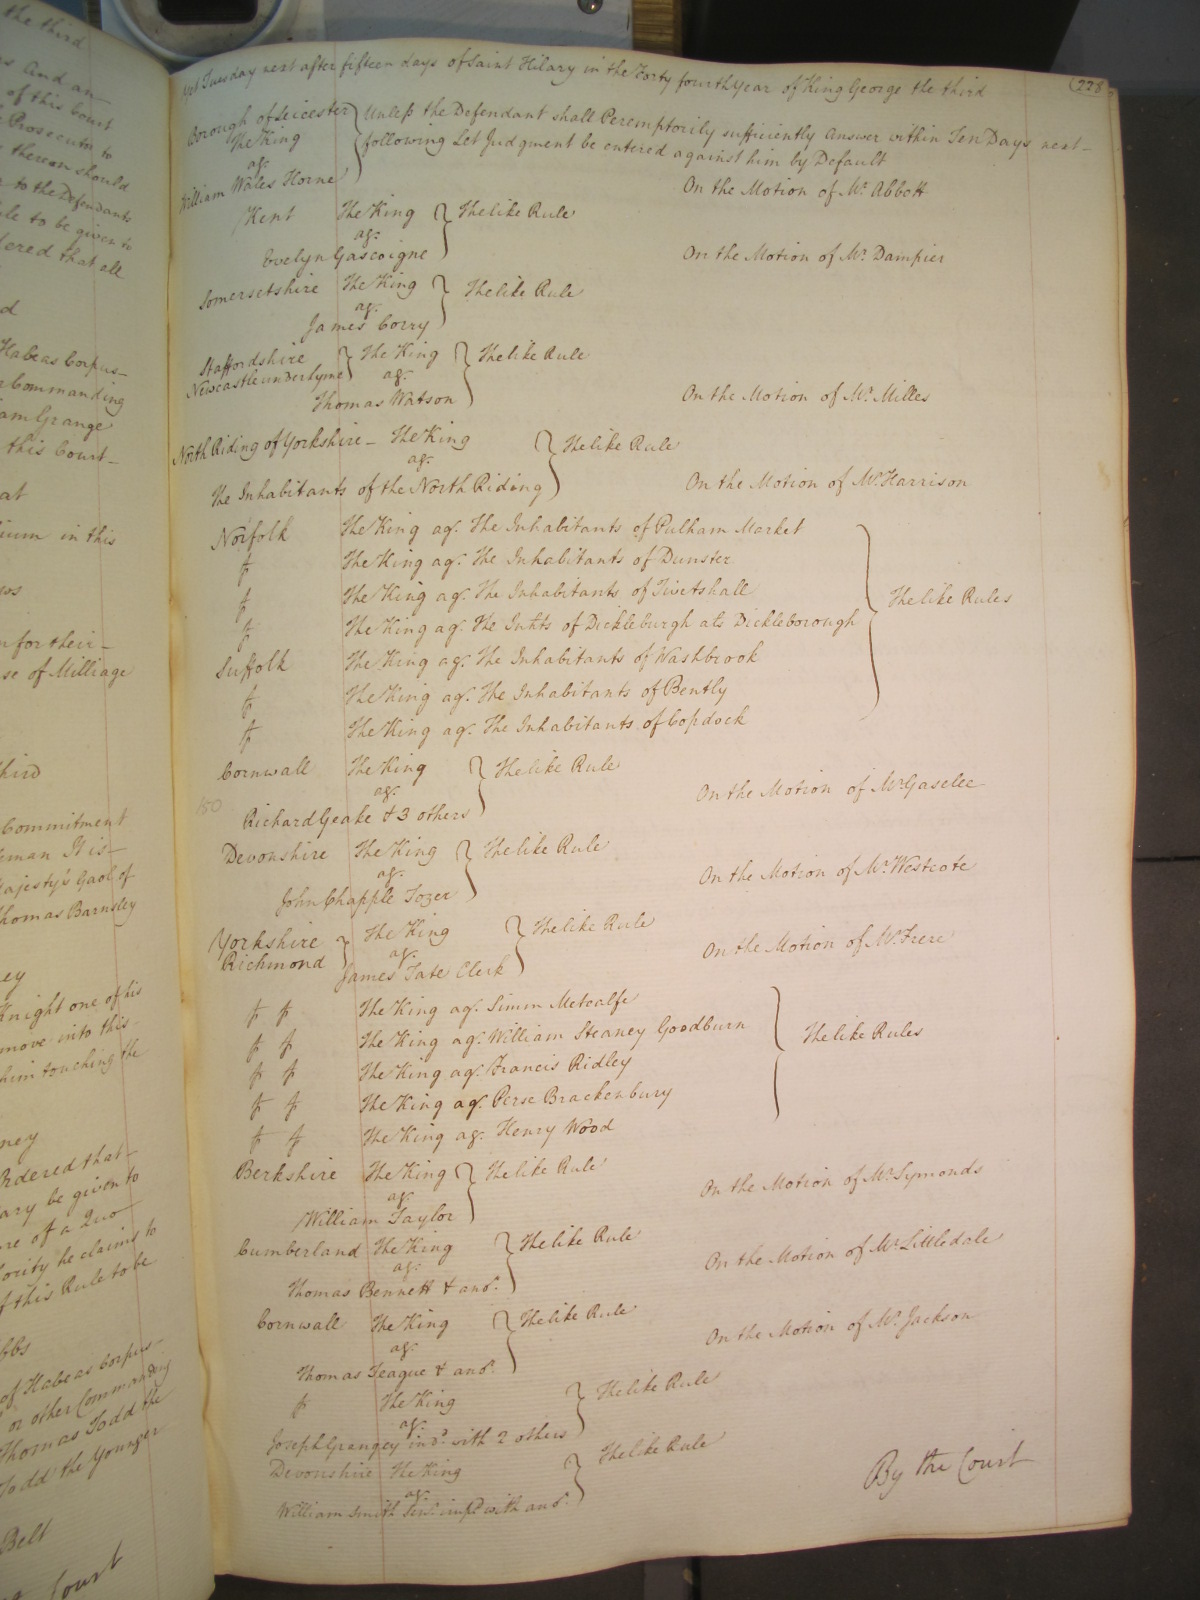 the third
Yet Tuesday next after fifteen days of Saint Hilary in the Forty fourth Year of King George the third
(228
Borough of Leicester } Unless the Defendant shall Peremptorily sufficiently answer within Ten Days next
The King
ag.
following Let Judgment be entered against him by Default
William Wales Horne
On the Motion of Mr. Abbott
Kent The King } The like Rule
ag.
Evelyn Gascoigne
On the Motion of Mr. Dampier
Somersetshire The King } The like Rule
ag.
James Corry
Staffordshire } The King } The like Rule
Newcastle underlyme ag.
Thomas Watson
On the Motion of Mr. Milles
North Riding of Yorkshire - The King } The like Rule
ag.
The Inhabitants of the North Riding
On the Motion of Mr. Harrison
Norfolk The King ag. The Inhabitants of Pulham Market
The King ag. The Inhabitants of Dunster
The King ag. The Inhabitants of Tivetshall } The like Rules
The King ag. The Inhts of Dickleburgh als Dickleborough
Suffolk The King ag. The Inhabitants of Washbrook
The King ag. The Inhabitants of Bently
The King ag. The Inhabitants of Copdock
Cornwall The King } The like Rule
ag.
On the Motion of Mr. Gaselee
150
Richard Geake & 3 others
Devonshire The King } The like Rule
ag.
On the Motion of Mr. Westcote
John Chapple Tozer
Yorkshire } The King } The like Rule
Richmond ag.
On the Motion of Mr. Frere
James Tate Clerk
The King ag. Simon Metcalfe
The King ag. William Steaney Goodburn } The like Rules
The King ag. Francis Ridley
The King ag. Perse Brackenbury
The King ag. Henry Wood
Berkshire The King } The like Rule
ag.
On the Motion of Mr. Symonds
William Taylor
Cumberland The King } The like Rule
ag.
On the Motion of Mr. Littledale
Thomas Bennett & anor.
Cornwall The King } The like Rule
ag.
On the Motion of Mr. Jackson
Thomas Teague & anor.
The King } The like Rule
ag.
Joseph Grangey with 2 others
Devonshire The King } The like Rule
ag.
William Smith impd. with anor.
By the Court
of this Court
Prosecutor to
thereon should
to the Defendants
to be given to
ordered that all
Habeas Corpus
Commanding
Grange
this Court
at
in this
for their
of Milliage
third
Commitment
It is
Majesty's Gaol of
Thomas Barnsley
Knight one of his
move into this
him touching the
Ordered that
be given to
of a Quo
he claims to
this Rule to be
of Habeas Corpus
or other Commanding
Thomas Todd the
Todd the younger
Belt
Court